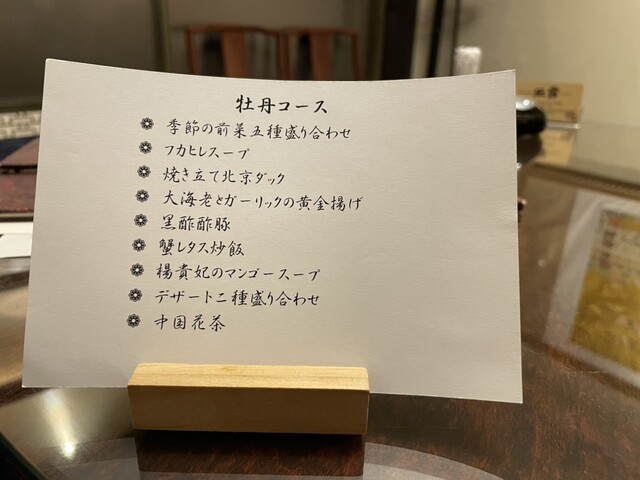 牡丹コース
季節の前菜五種盛り合わせ
フカヒレスープ
焼き立て北京ダック
大海老とガーリックの黄金揚げ
黒酢酢豚
蟹レタス炒飯
楊貴妃のマンゴースープ
デザート二種盛り合わせ
中国花茶